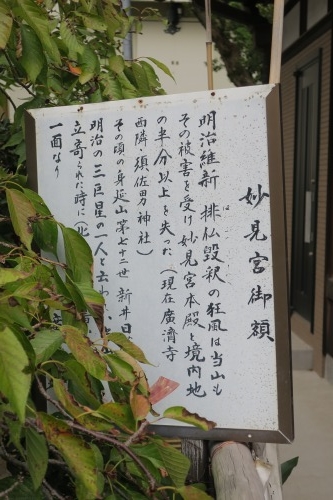 妙見宮御額
明治維新 排仏毀釈の狂風は当山も
その被害を受け妙見宮本殿と境内地
の半分以上を失った（現在廣濟寺
西隣・須佐男神社）
その頃の身延山第七十二世 新井日
明治の三巨星の一人と云わ
立寄られた時に（北
一面なり